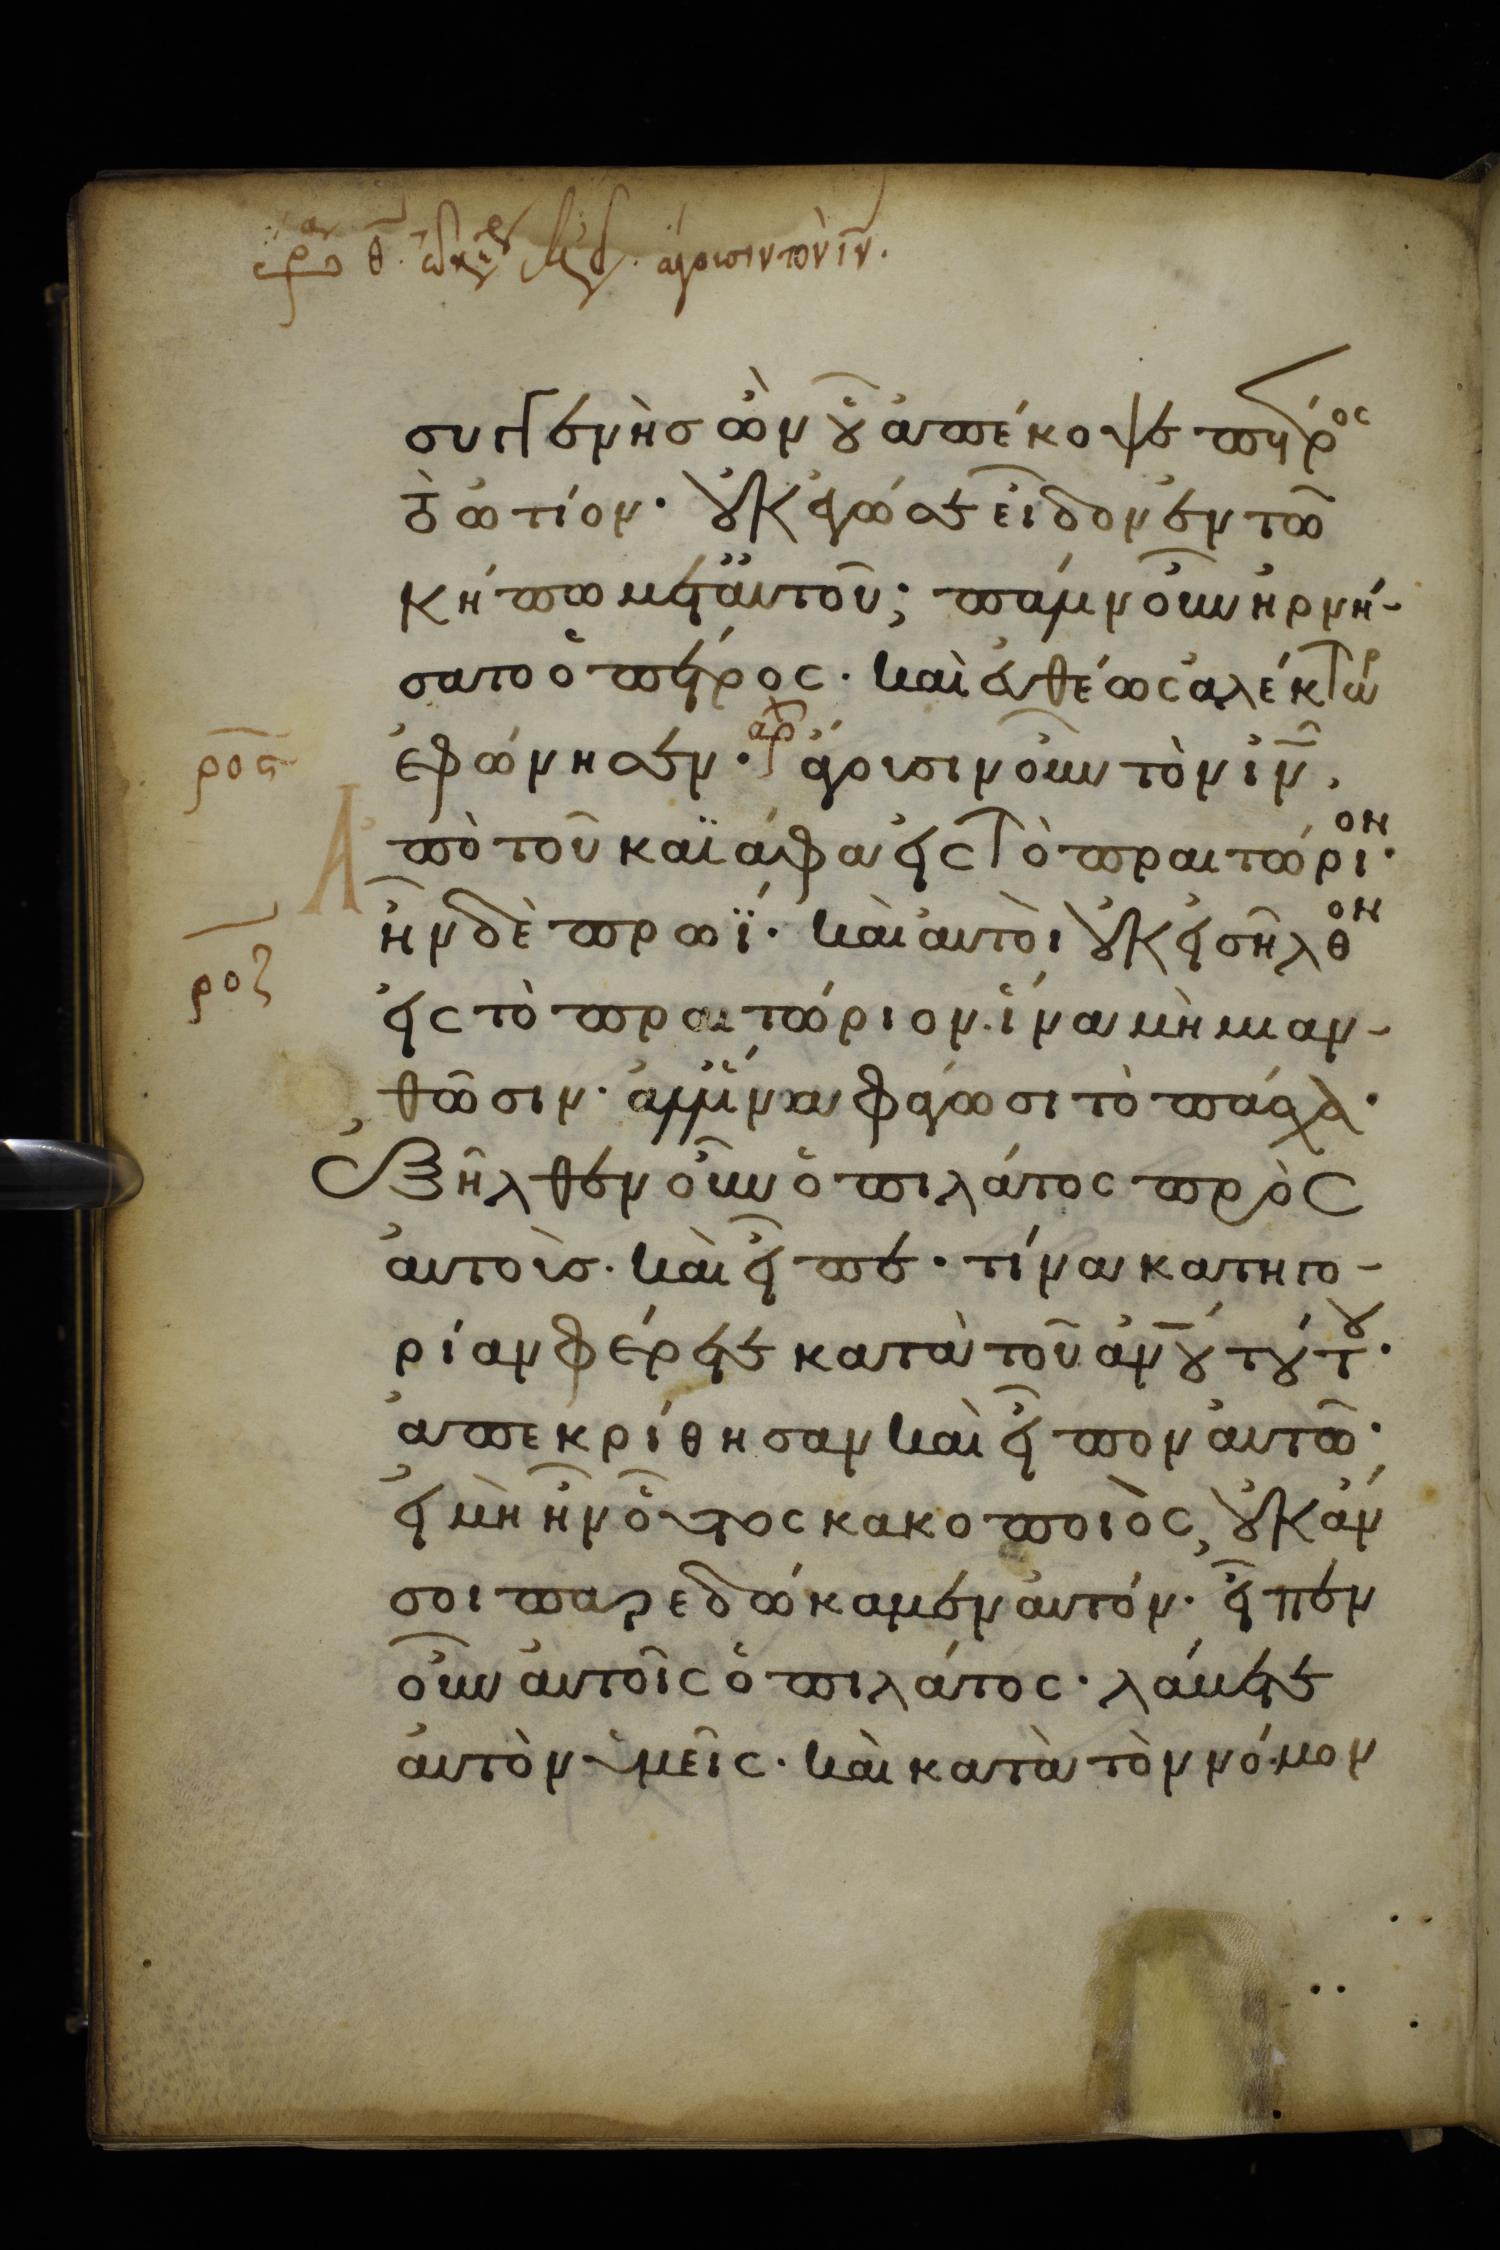 ἄγουσιν τὸν ι̅ν̅.
συγγενὴς ὢν οὗ ἀπέκοψε πέτρος
τὸ ὠτίον· οὐκ ἐγώ σε εἶδον ἐν τῶ
κήπω μετ᾽ αὐτοῦ; πάλιν οὖν ἠρνή-
σατο ὁ πέτρος· καὶ εὐθέως ἀλέκτωρ
ρος
ἐφώνησεν· ἀρχ ἄγουσιν οὖν τὸν ι̅ν̅,
Ἀπὸ τοῦ καϊάφα εἰς τὸ πραιτώριον·
ἦν δὲ πρωΐ· καὶ αὐτοὶ οὐκ εἰσῆλθον
ροζ
εἰς τὸ πραιτώριον· ἵνα μὴ μιαν-
θῶσιν· ἀλλ᾽ ἵνα φάγωσι τὸ πάσχα·
ἐξῆλθεν οὖν ὁ πιλάτος πρὸς
αὐτοὺς· καὶ εἶπε· τίνα κατηγο-
ρίαν φέρετε κατὰ τοῦ α̅ν̅ου τούτου·
ἀπεκρίθησαν καὶ εἶπον αὐτῶ·
εἰ μὴ ἦν οὗτος κακοποιὸς, οὐκ ἄν
σοι παρεδώκαμεν αὐτόν· εἶπεν
οὖν αὐτοῖς ὁ πιλάτος· λάβετε
αὐτὸν ὑμεῖς· καὶ κατὰ τὸν νόμον